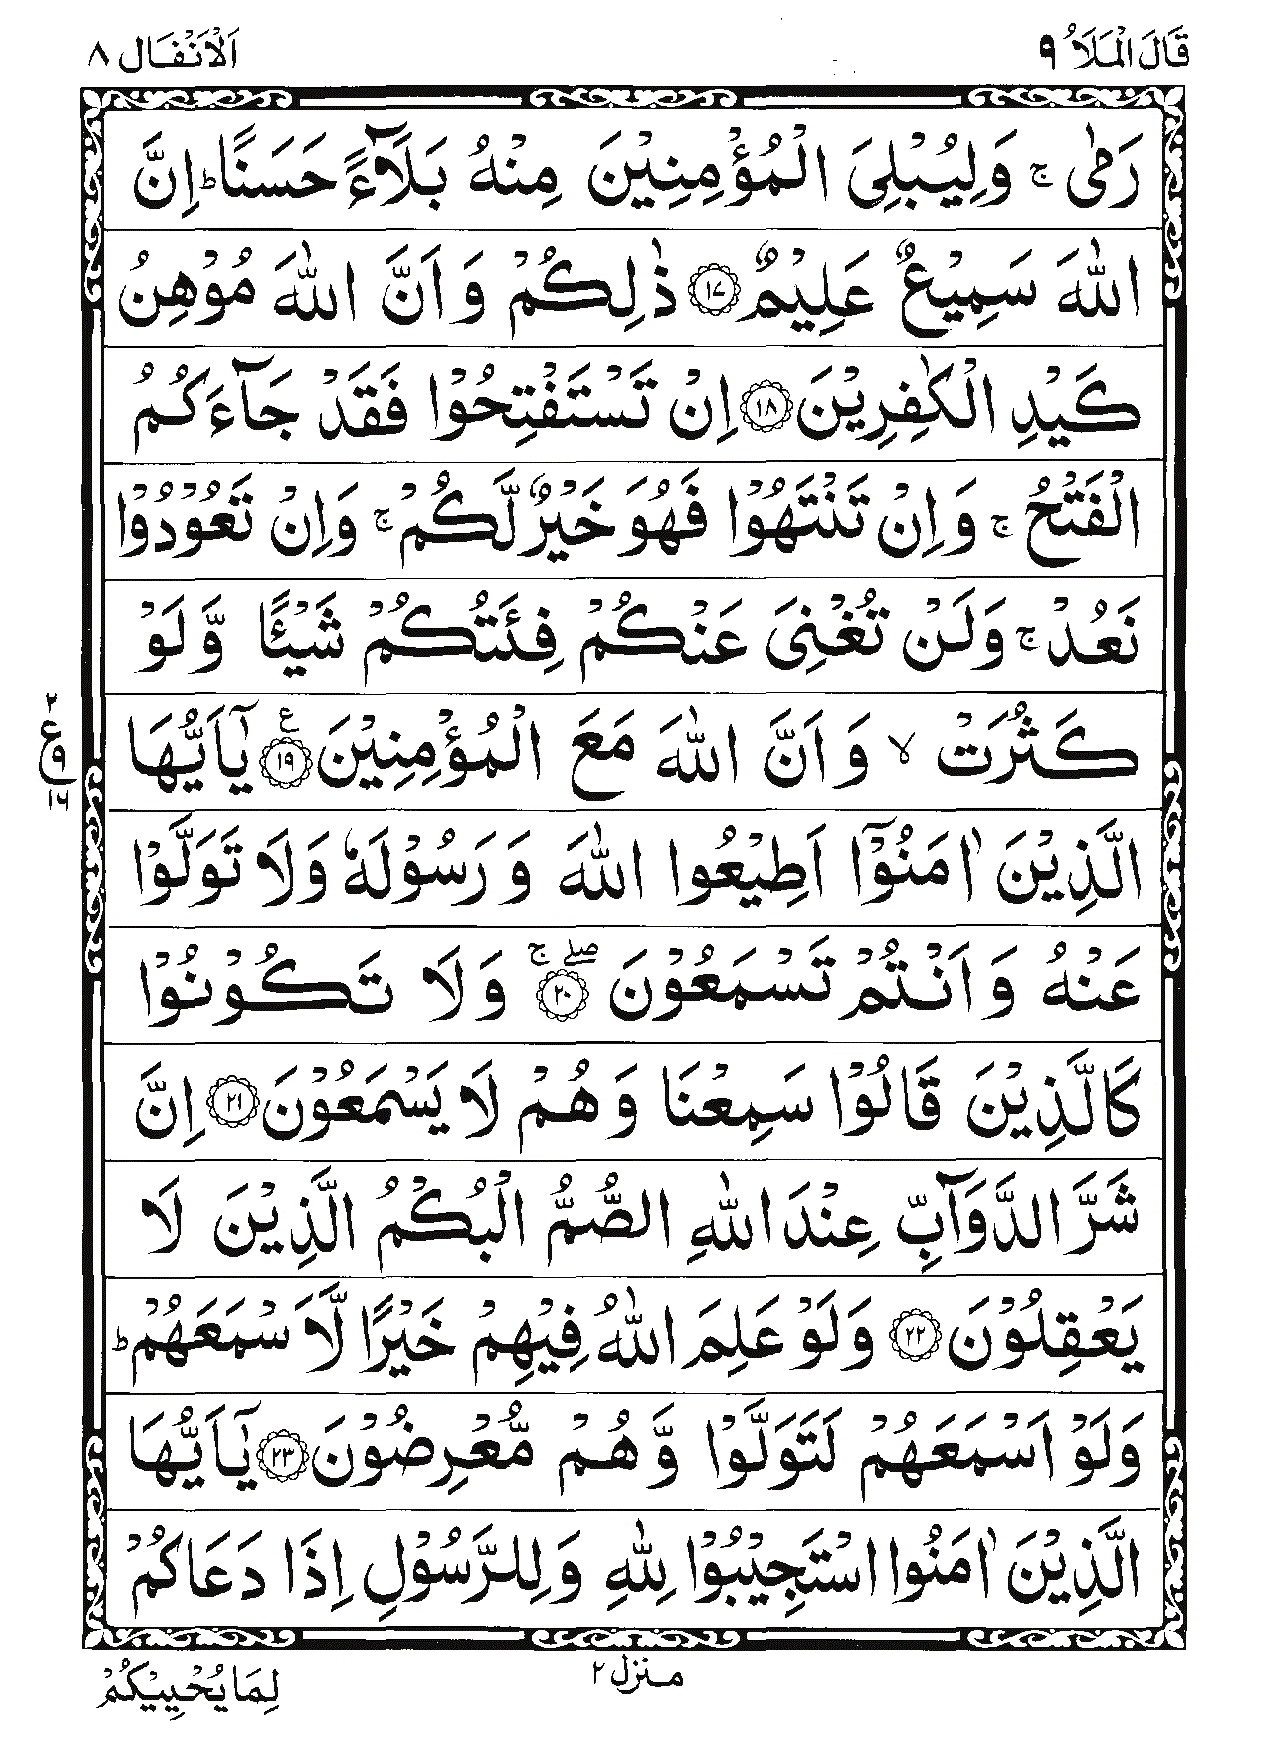 قَالَ الْمَلَاُ ٩
اَلْاَنْفَال ٨
رَمٰى ۚ وَلِيُبْلِىَ الْمُؤْمِنِيْنَ مِنْهُ بَلَآءً حَسَنًا ؕ اِنَّ
اللّٰهَ سَمِيْعٌ عَلِيْمٌ ﴿١٧﴾ ذٰلِكُمْ وَ اَنَّ اللّٰهَ مُوْهِنُ
كَيْدِ الْكٰفِرِيْنَ ﴿١٨﴾ اِنْ تَسْتَفْتِحُوْا فَقَدْ جَآءَكُمُ
الْفَتْحُ ۚ وَاِنْ تَنْتَهُوْا فَهُوَ خَيْرٌ لَّكُمْ ۚ وَاِنْ تَعُوْدُوْا
نَعُدْ ۚ وَلَنْ تُغْنِىَ عَنْكُمْ فِئَتُكُمْ شَيْـًٔا وَّلَوْ
كَثُرَتْ ۙ وَ اَنَّ اللّٰهَ مَعَ الْمُؤْمِنِيْنَ ﴿١٩﴾ ع يٰٓاَيُّهَا
٢
ع
٩
١٦
الَّذِيْنَ اٰمَنُوْٓا اَطِيْعُوا اللّٰهَ وَ رَسُوْلَهٗ وَلَا تَوَلَّوْا
عَنْهُ وَ اَنْتُمْ تَسْمَعُوْنَ ﴿٢٠﴾ ۖ ۚ وَ لَا تَكُوْنُوْا
كَالَّذِيْنَ قَالُوْا سَمِعْنَا وَ هُمْ لَا يَسْمَعُوْنَ ﴿٢١﴾ اِنَّ
شَرَّ الدَّوَآبِّ عِنْدَ اللّٰهِ الصُّمُّ الْبُكْمُ الَّذِيْنَ لَا
يَعْقِلُوْنَ ﴿٢٢﴾ وَلَوْ عَلِمَ اللّٰهُ فِيْهِمْ خَيْرًا لَّاَسْمَعَهُمْ ؕ
وَلَوْ اَسْمَعَهُمْ لَتَوَلَّوْا وَّ هُمْ مُّعْرِضُوْنَ ﴿٢٣﴾ يٰٓاَيُّهَا
الَّذِيْنَ اٰمَنُوا اسْتَجِيْبُوْا لِلّٰهِ وَلِلرَّسُوْلِ اِذَا دَعَاكُمْ
منزل ٢
لِمَا يُحْيِيْكُمْ